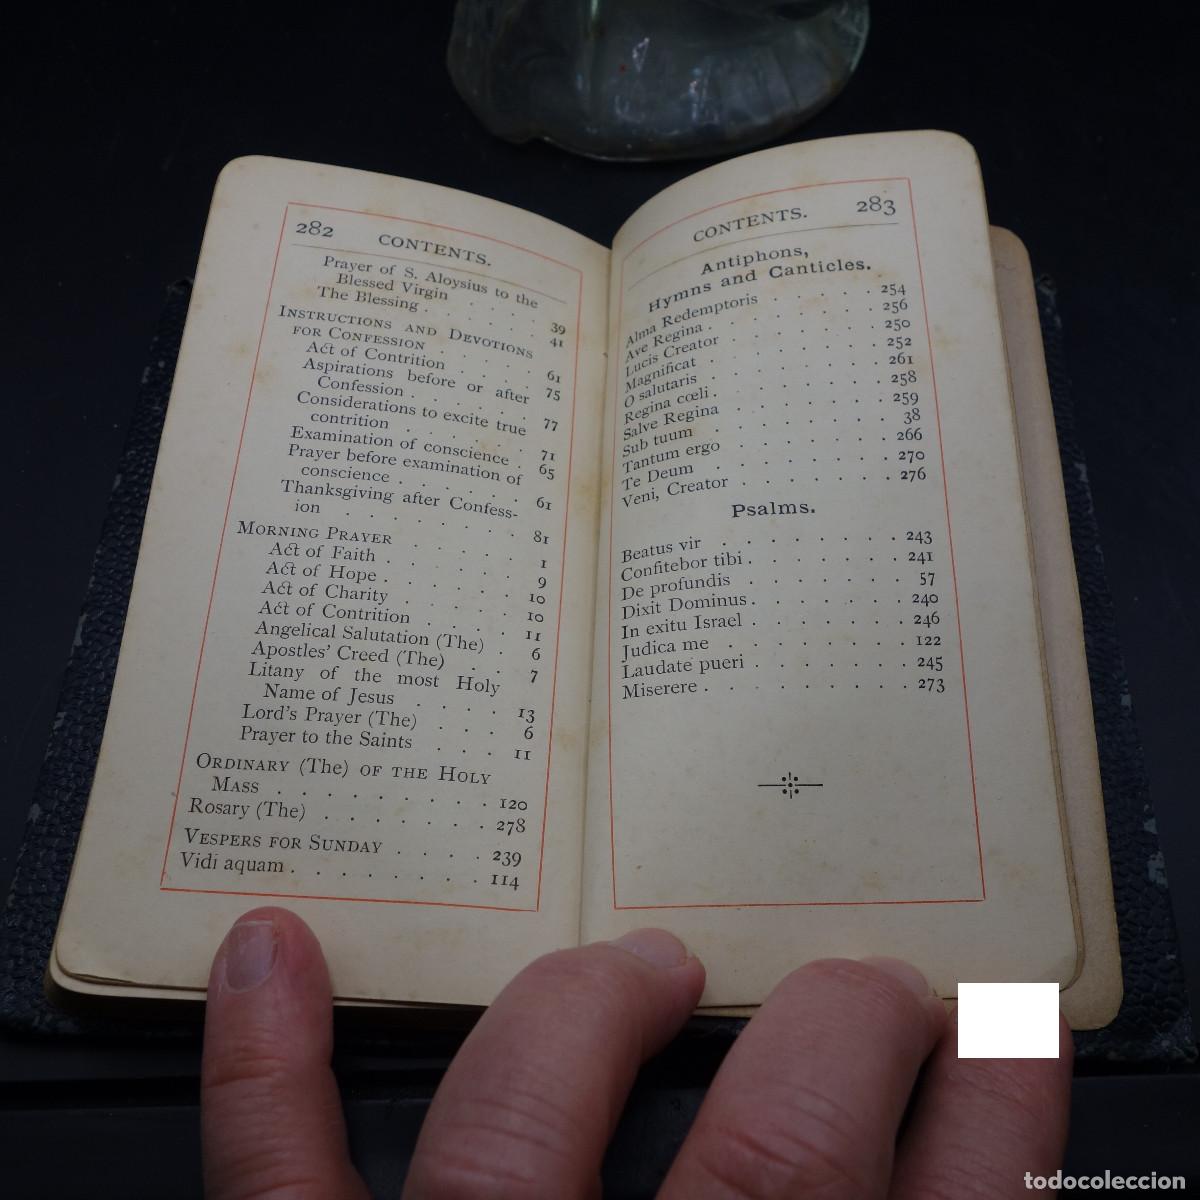 282 CONTENTS.
Prayer of S. Aloysius to the
Blessed Virgin . . . . 39
The Blessing . . . . . . 41
INSTRUCTIONS AND DEVOTIONS
FOR CONFESSION . . . . . 61
Act of Contrition . . . . 75
Aspirations before or after
Confession . . . . . . 77
Considerations to excite true
contrition . . . . . . 71
Examination of conscience . 65
Prayer before examination of
conscience . . . . . . 61
Thanksgiving after Confess-
ion . . . . . . . 81
MORNING PRAYER . . . . . 1
Act of Faith . . . . . 9
Act of Hope . . . . . . 10
Act of Charity . . . . . 10
Act of Contrition . . . . 11
Angelical Salutation (The) . 6
Apostles' Creed (The) . . 7
Litany of the most Holy
Name of Jesus . . . . 13
Lord's Prayer (The) . . . 6
Prayer to the Saints . . . 11
ORDINARY (The) OF THE HOLY
MASS . . . . . . . . . 120
Rosary (The) . . . . . . . 278
VESPERS FOR SUNDAY . . . . 239
Vidi aquam . . . . . . . . 114
CONTENTS. 283
Antiphons,
Hymns and Canticles.
Alma Redemptoris . . . . . 254
Ave Regina . . . . . . . . 256
Lucis Creator . . . . . . . 250
Magnificat . . . . . . . . 252
O salutaris . . . . . . . . 261
Regina cœli . . . . . . . . 258
Salve Regina . . . . . . . 259
Sub tuum . . . . . . . . 38
Tantum ergo . . . . . . . 266
Te Deum . . . . . . . . 270
Veni, Creator . . . . . . . 276
Psalms.
Beatus vir . . . . . . . . 243
Confitebor tibi . . . . . . . 241
De profundis . . . . . . . 57
Dixit Dominus . . . . . . . 240
In exitu Israel . . . . . . . 246
Judica me . . . . . . . . 122
Laudate pueri . . . . . . . 245
Miserere . . . . . . . . . 273
todocoleccion